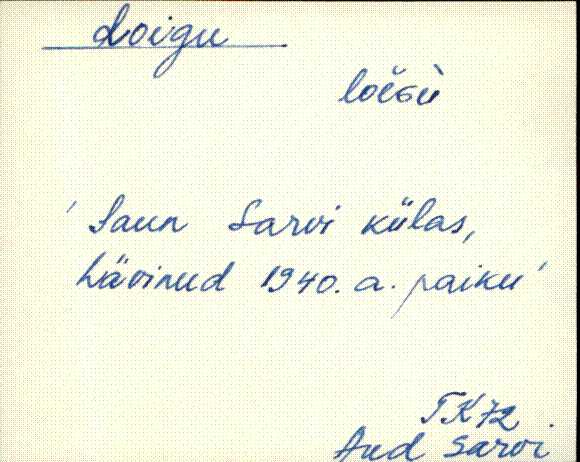 Loigu
loĕGù
' Saun Sarvi külas,
hävinud 1940. a. paiku '
TK 72
Aud Sarvi